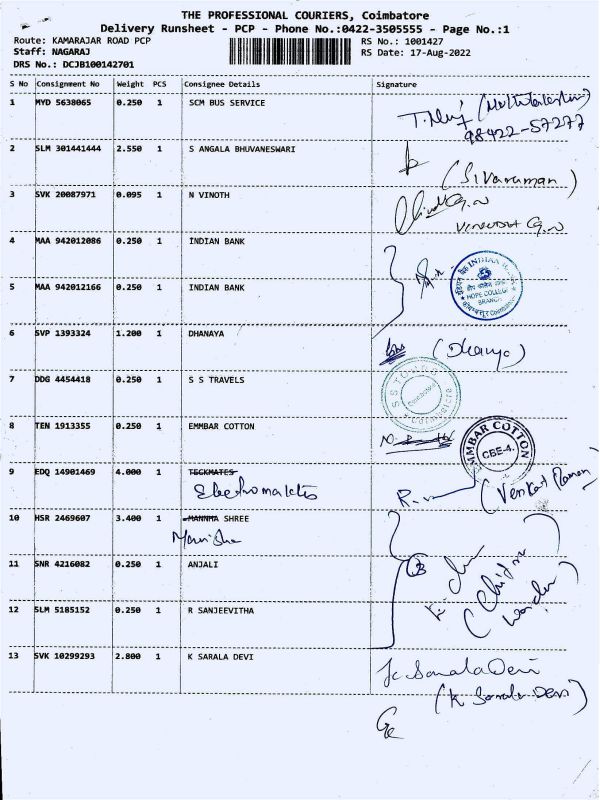 THE PROFESSIONAL COURIERS, Coimbatore
Delivery Runsheet - PCP - Phone No.:0422-3505555 - Page No.:1
Route: KAMARAJAR ROAD PCP RS No.: 1001427
Staff: NAGARAJ RS Date: 17-Aug-2022
DRS No.: DCJB100142701
S No Consignment No Weight PCS Consignee Details Signature
1 MYD 5638065 0.250 1 SCM BUS SERVICE
98422-57277
2 SLM 301441444 2.550 1 S ANGALA BHUVANESWARI
(Sivaraman)
3 SVK 20087971 0.095 1 N VINOTH
VINOTH G.N
4 MAA 942012086 0.250 1 INDIAN BANK
INDIAN BANK
HOPE COLLEGE
BRANCH
Coimbatore
5 MAA 942012166 0.250 1 INDIAN BANK
6 SVP 1393324 1.200 1 DHANAYA
(Dhanya)
7 DDG 4454418 0.250 1 S S TRAVELS
S S TOURS
Coimbatore
8 TEN 1913355 0.250 1 EMMBAR COTTON
EMMBAR COTTON
CBE-4.
9 EDQ 14901469 4.000 1 TECKMATES
Electromaktes
(Venkat Raman)
10 HSR 2469607 3.400 1 MANNHA SHREE
Manisha
11 SNR 4216082 0.250 1 ANJALI
12 SLM 5185152 0.250 1 R SANJEEVITHA
13 SVK 10299293 2.800 1 K SARALA DEVI
K. Sarala Devi
(K Sarala Devi)